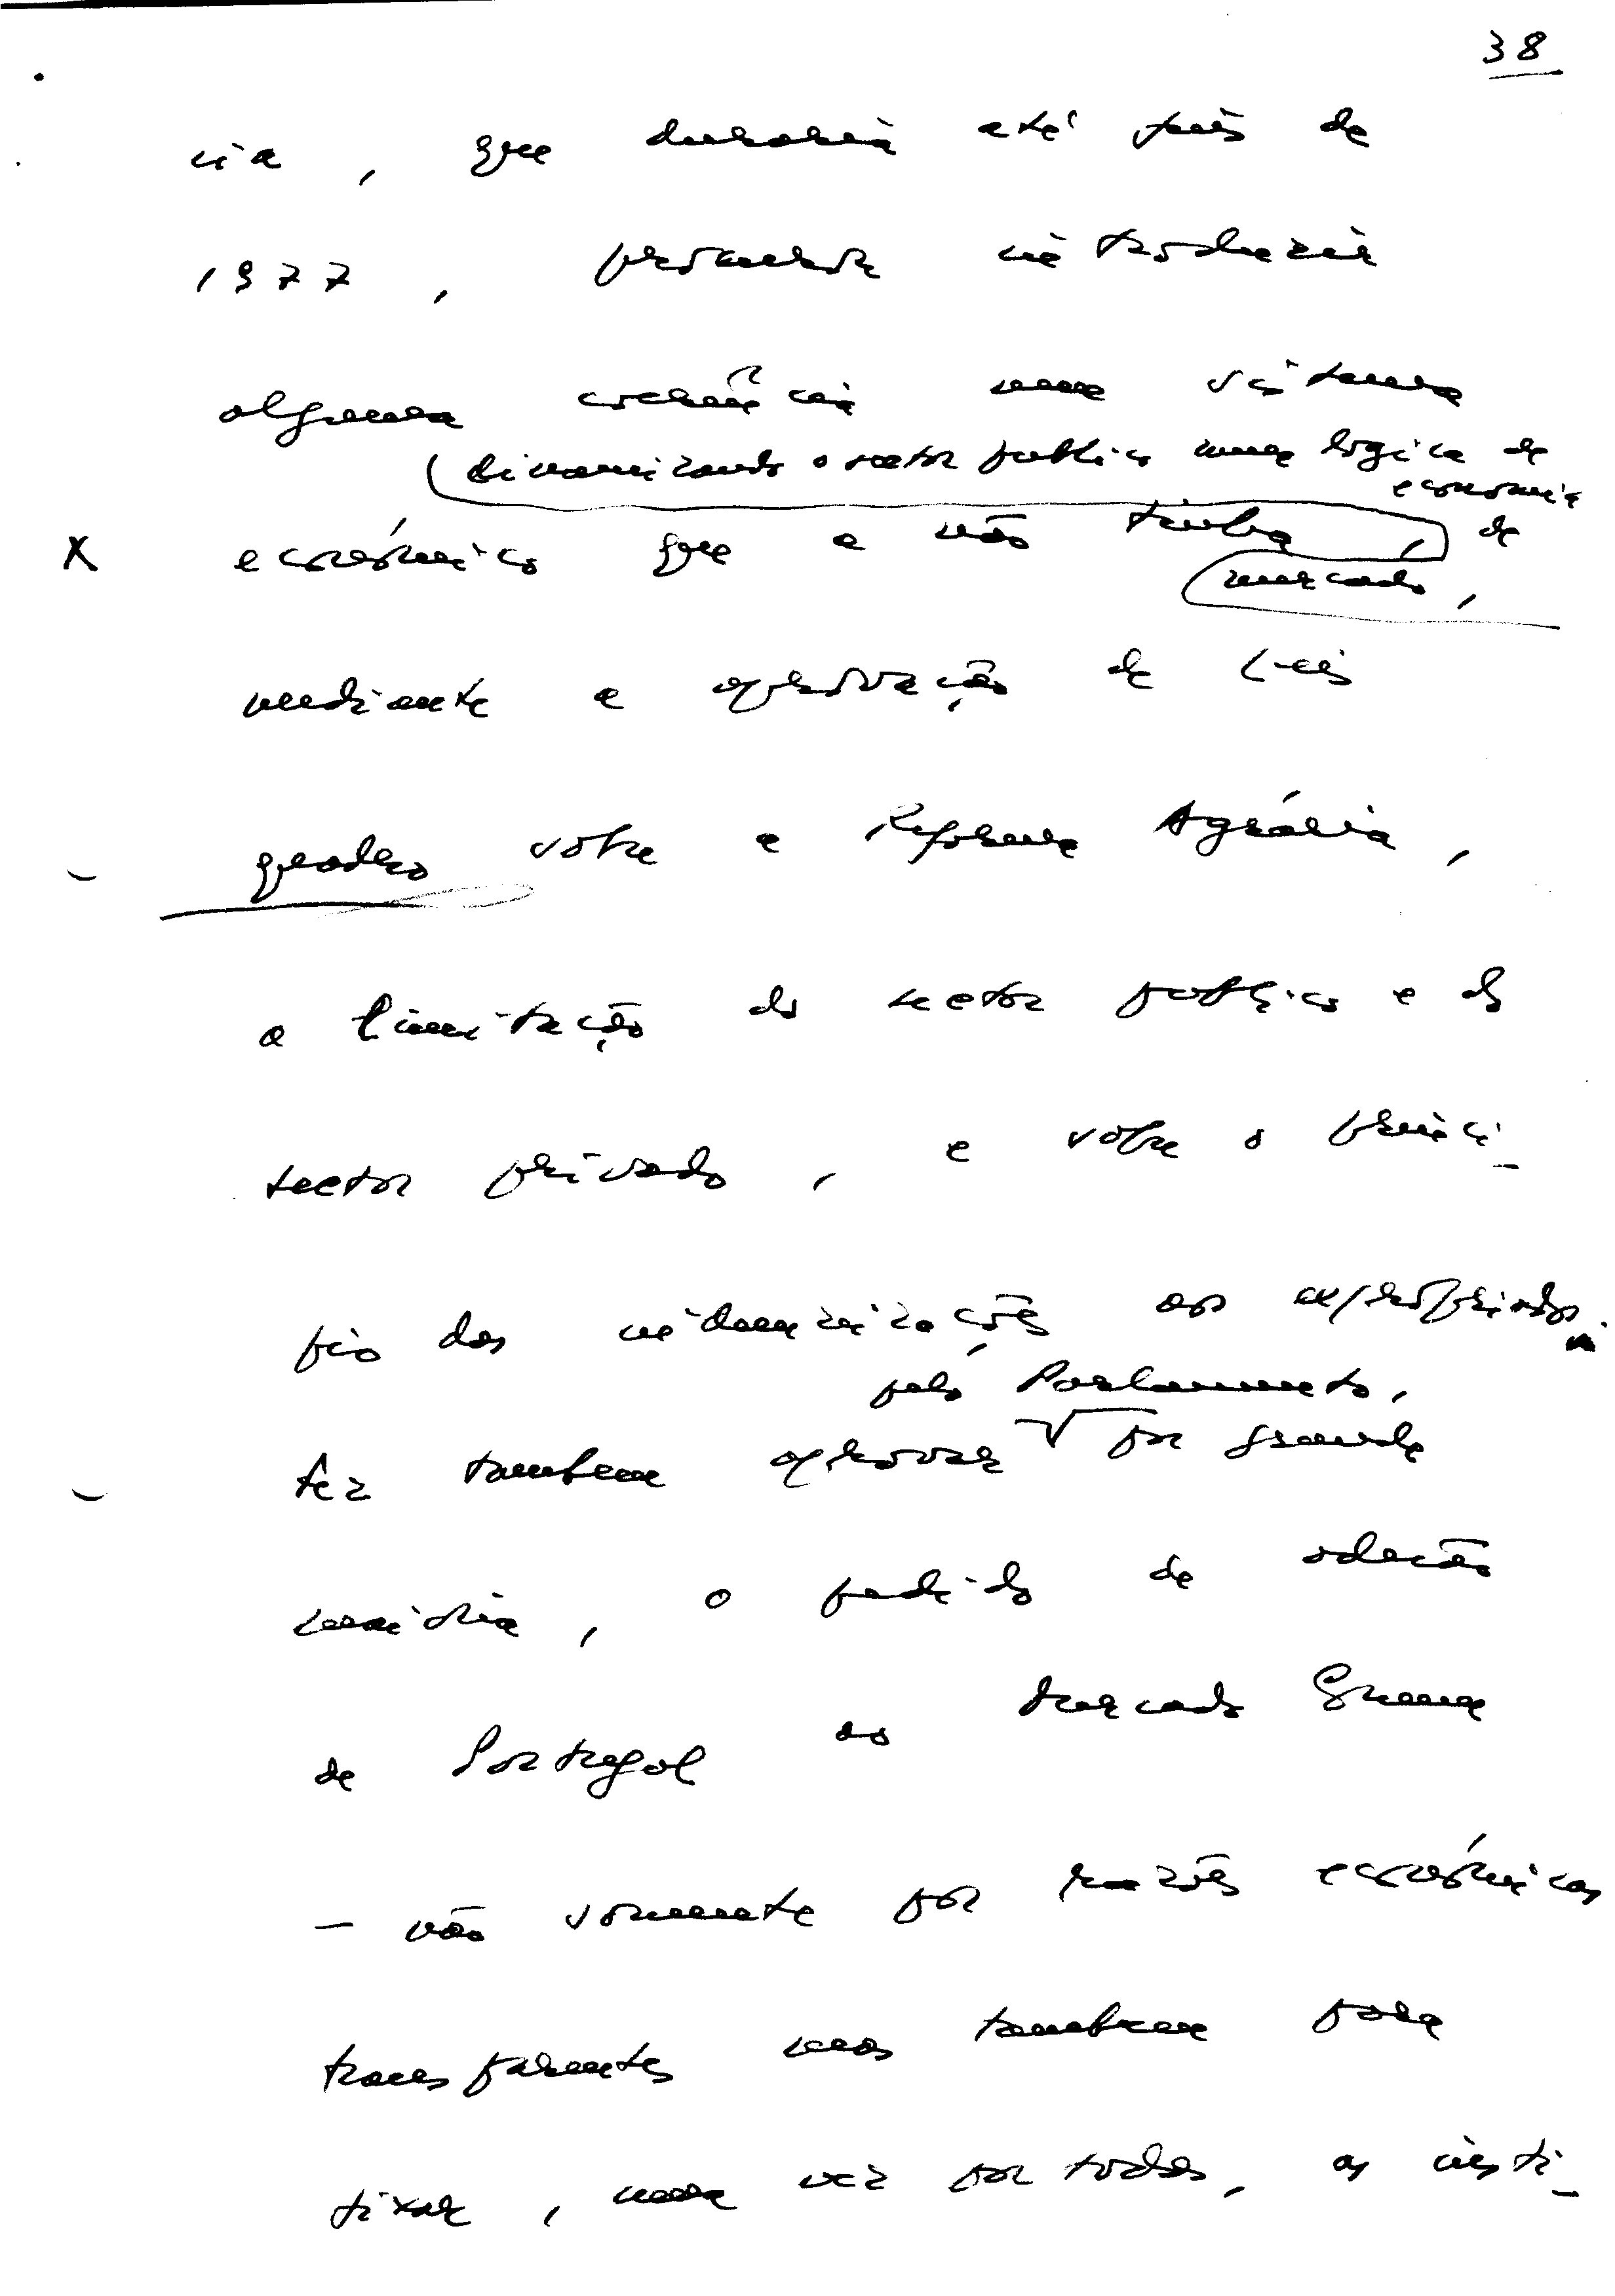 38
cia, que duraria até fins de
1977, procurou introduzir
alguma coerência num sistema
dinamizando o sector público numa lógica de
economia
económico que a não tinha, de
mercado,
mediante a aprovação de Leis
quadro sobre a Reforma Agrária,
a limitação do sector público e do
sector privado, e sobre o princí-
pio das indemnizações aos expropriados.
pelo Parlamento,
Fez também aprovar por grande
maioria, o pedido de adesão
de Portugal ao Mercado Comum
— não somente por razões económicas
transparentes mas também para
fixar, uma vez por todas, as insti-